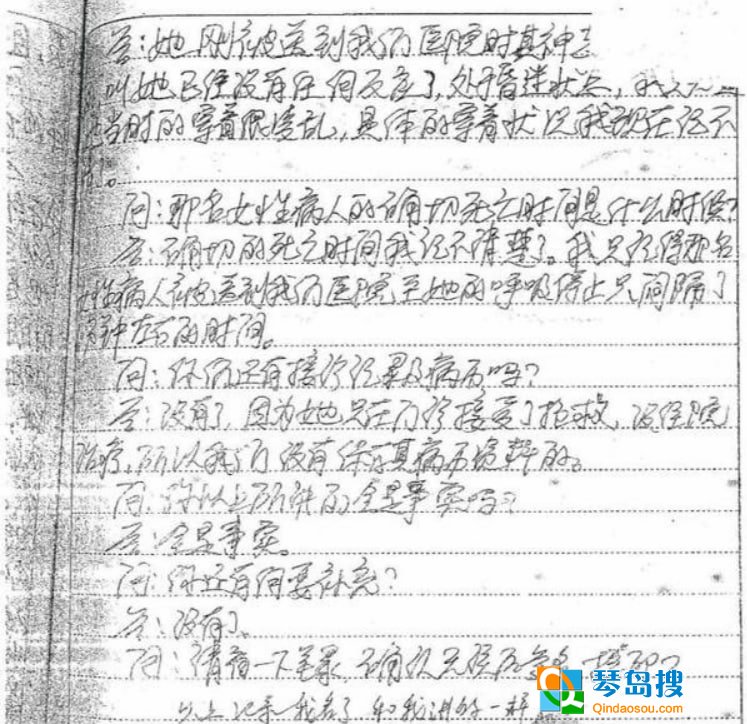 答：她刚被送到我们医院时其神
叫她已经没有任何反应了，处于昏迷状态，
当时的穿着很凌乱，具体的穿着状况我现在记不
。
问：那名女性病人的确切死亡时间是什么时候？
答：确切的死亡时间我记不清楚了。我只记得那名
女性病人被送到我们医院至她的呼吸停止只间隔了
钟左右的时间。
问：你们还有接诊记录及病历吗？
答：没有了，因为她只在门诊接受了抢救，没经院
治疗，所以我们没有保存其病历资料的。
问：你以上所讲的全是事实吗？
答：全是事实。
问：你还有何要补充？
答：没有了。
问：请看一下笔录，确认无误后签名
以上记录我看了和我讲的一样
琴岛搜
Qindaosou.com